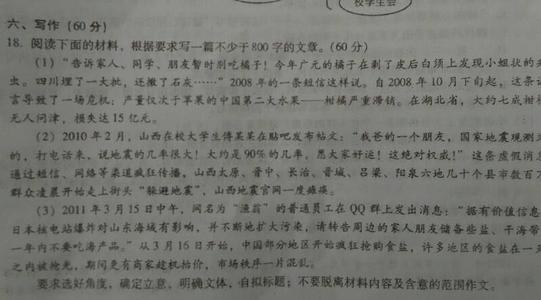 校学生会
六、写作（60分）
18. 阅读下面的材料，根据要求写一篇不少于800字的文章。（60分）
（1）“告诉家人、同学、朋友暂时别吃橘子！今年广元的橘子在剥了皮后白须上发现小蛆状的
虫。四川埋了一大批，还撒了石灰……”2008年的一条短信这样说。自2008年10月下旬起，这条
言导致了一场危机：产量仅次于苹果的中国第二大水果——柑橘严重滞销。在湖北省，大约七成柑
无人问津，损失达15亿元。
（2）2010年2月，山西在校大学生傅某某在贴吧发布帖文：“我爸的一个朋友，国家地震观测
的，打电话来，说地震的几率很大！大约是90%的几率。愿大家好运！这绝对权威！”这条虚假消
通过短信、网络等渠道疯狂传播，山西太原、晋中、长治、晋城、吕梁、阳泉六地几十个县市数百万
群众凌晨开始走上街头“躲避地震”，山西地震官网一度瘫痪。
（3）2011年3月15日中午，网名为“渔翁”的普通员工在QQ群上发出消息：“据有价值信息
日本核电站爆炸对山东海域有影响，并不断地扩大污染，请转告周边的家人朋友储备些盐、干海带
一年内不要吃海产品。”从3月16日开始，中国部分地区开始疯狂抢购食盐，许多地区的食盐在一
之内被抢光，期间更有商家趁机抬价，市场秩序一片混乱。
要求选好角度，确定立意，明确文体，自拟标题；不要脱离材料内容及含意的范围作文。